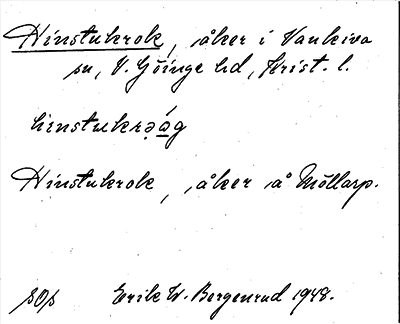 Hinstukrok, åker i Vankiva
sn, V. Göinge hd, Krist. l.
hinstukrǝág
Hinstukrok, åker å Möllarp.
sOs Erik W. Bergenrud 1948.